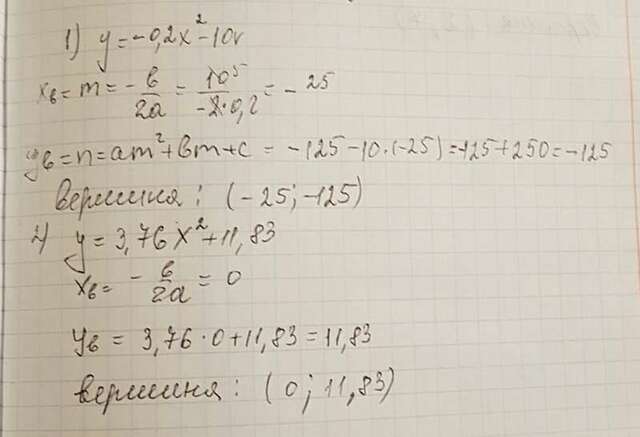 1) y = -0,2x² - 10x
xв = m = -в/2a = 10⁵/-2·0,2 = -25
yв = n = am² + вm + c = -125 - 10·(-25) = -125 + 250 = -125
вершина: (-25; -125)
2) y = 3,76x² + 11,83
xв = -в/2a = 0
yв = 3,76·0 + 11,83 = 11,83
вершина: (0; 11,83)